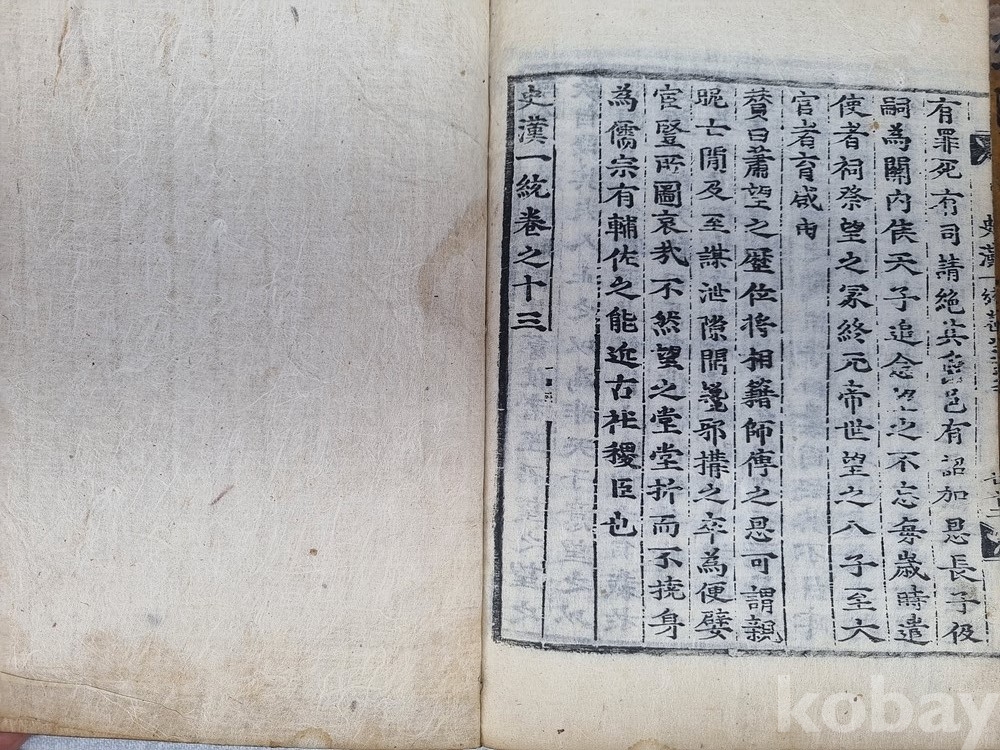 有罪死有司請絶其爵邑有詔加恩長子伋
嗣為關內侯天子追念望之不忘每歲時遣
使者祠祭望之冢終元帝世望之八子至大
官者育咸由
賛曰蕭望之歷位將相籍師傅之恩可謂親
昵亡閒及至謀泄隙開讒邪搆之卒為便嬖
宦竪所圖哀哉不然望之堂堂折而不撓身
為儒宗有輔佐之能近古社稷臣也
史漢一統卷之十三
kobay